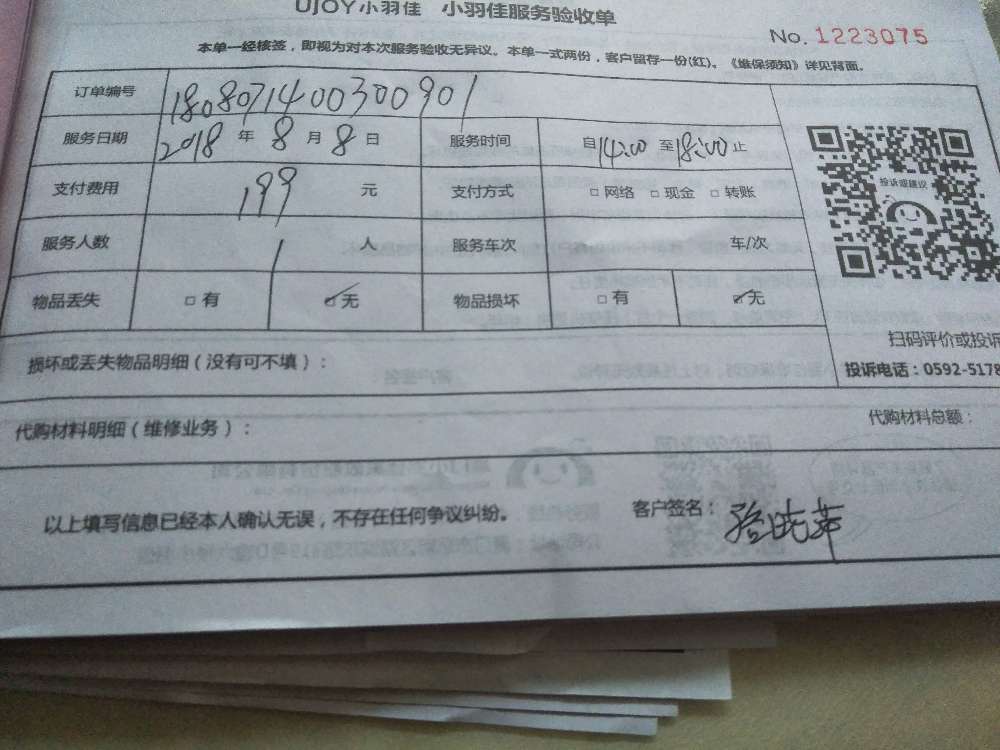 UJOY小羽佳 小羽佳服务验收单
No. 1223075
本单一经核签，即视为对本次服务验收无异议。本单一式两份，客户留存一份(红)。《维保须知》详见背面。
订单编号 180807140030 0901
服务日期 2018 年 8 月 8 日 服务时间 自 14:00 至 18:00 止
支付费用 199 元 支付方式 □ 网络 □ 现金 □ 转账
服务人数 1 人 服务车次 车/次
物品丢失 □ 有 ☑ 无 物品损坏 □ 有 ☑ 无
投诉或建议
扫码评价或投诉
投诉电话：0592-5178
损坏或丢失物品明细（没有可不填）：
代购材料明细（维修业务）： 代购材料总额：
以上填写信息已经本人确认无误，不存在任何争议纠纷。 客户签名：